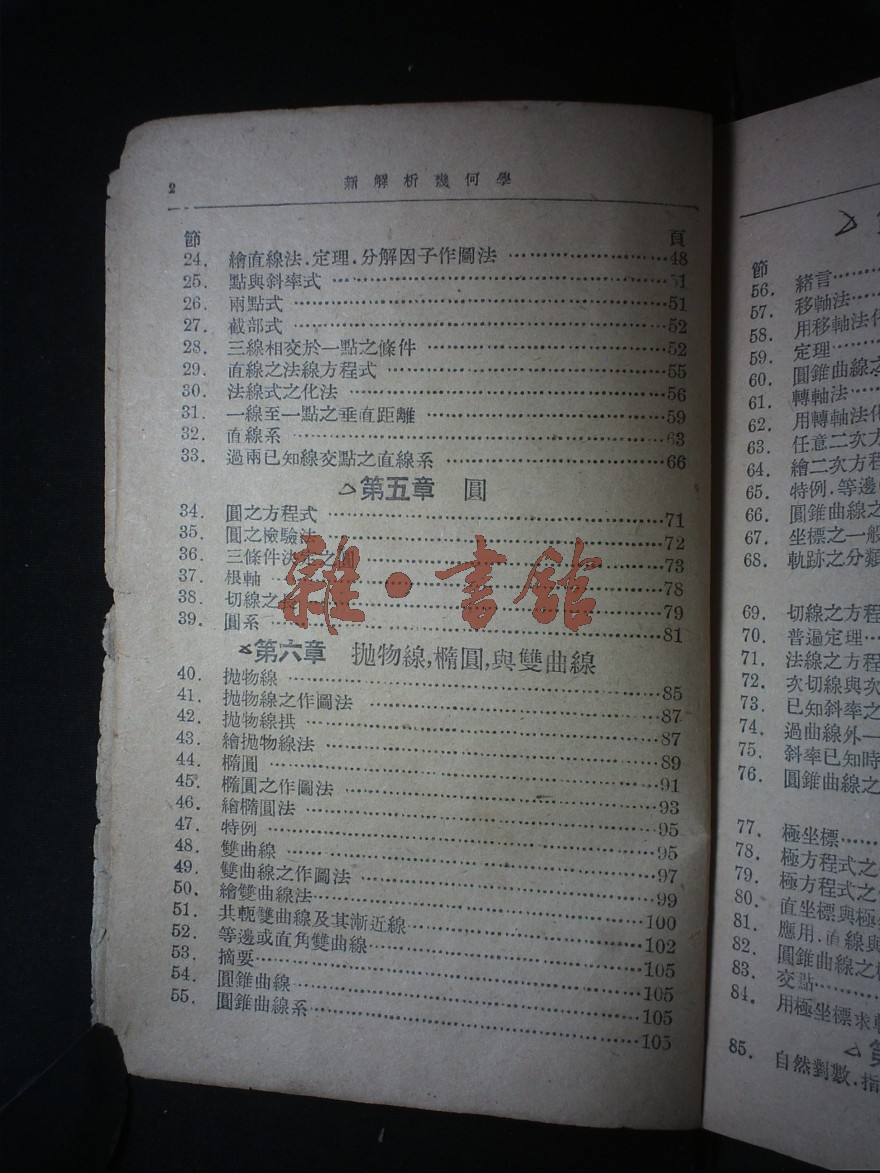 2 新解析幾何學
節 頁
24. 繪直線法.定理.分解因子作圖法 48
25. 點與斜率式 51
26. 兩點式 51
27. 截部式 52
28. 三線相交於一點之條件 52
29. 直線之法線方程式 55
30. 法線式之化法 56
31. 一線至一點之垂直距離 59
32. 直線系 63
33. 過兩已知線交點之直線系 66
第五章 圓
34. 圓之方程式 71
35. 圓之檢驗法 72
36. 三條件決定之圓 73
37. 根軸 78
38. 切線之長 79
39. 圓系 81
第六章 拋物線,橢圓,與雙曲線
40. 拋物線 85
41. 拋物線之作圖法 87
42. 拋物線拱 87
43. 繪拋物線法 89
44. 橢圓 91
45. 橢圓之作圖法 93
46. 繪橢圓法 95
47. 特例 95
48. 雙曲線 97
49. 雙曲線之作圖法 99
50. 繪雙曲線法 100
51. 共軛雙曲線及其漸近線 102
52. 等邊或直角雙曲線 105
53. 摘要 105
54. 圓錐曲線 105
55. 圓錐曲線系 105
雜·書館
節
56. 緒言
57. 移軸法
58. 用移軸法化
59. 定理
60. 圓錐曲線之
61. 轉軸法
62. 用轉軸法化
63. 任意二次方
64. 繪二次方程
65. 特例.等邊
66. 圓錐曲線之
67. 坐標之一般
68. 軌跡之分類
69. 切線之方程
70. 普遍定理
71. 法線之方程
72. 次切線與次
73. 已知斜率之
74. 過曲線外一
75. 斜率已知時
76. 圓錐曲線之
77. 極坐標
78. 極方程式之
79. 極方程式之
80. 直坐標與極
81. 應用.直線與
82. 圓錐曲線之
83. 交點
84. 用極坐標求
85. 自然對數.指